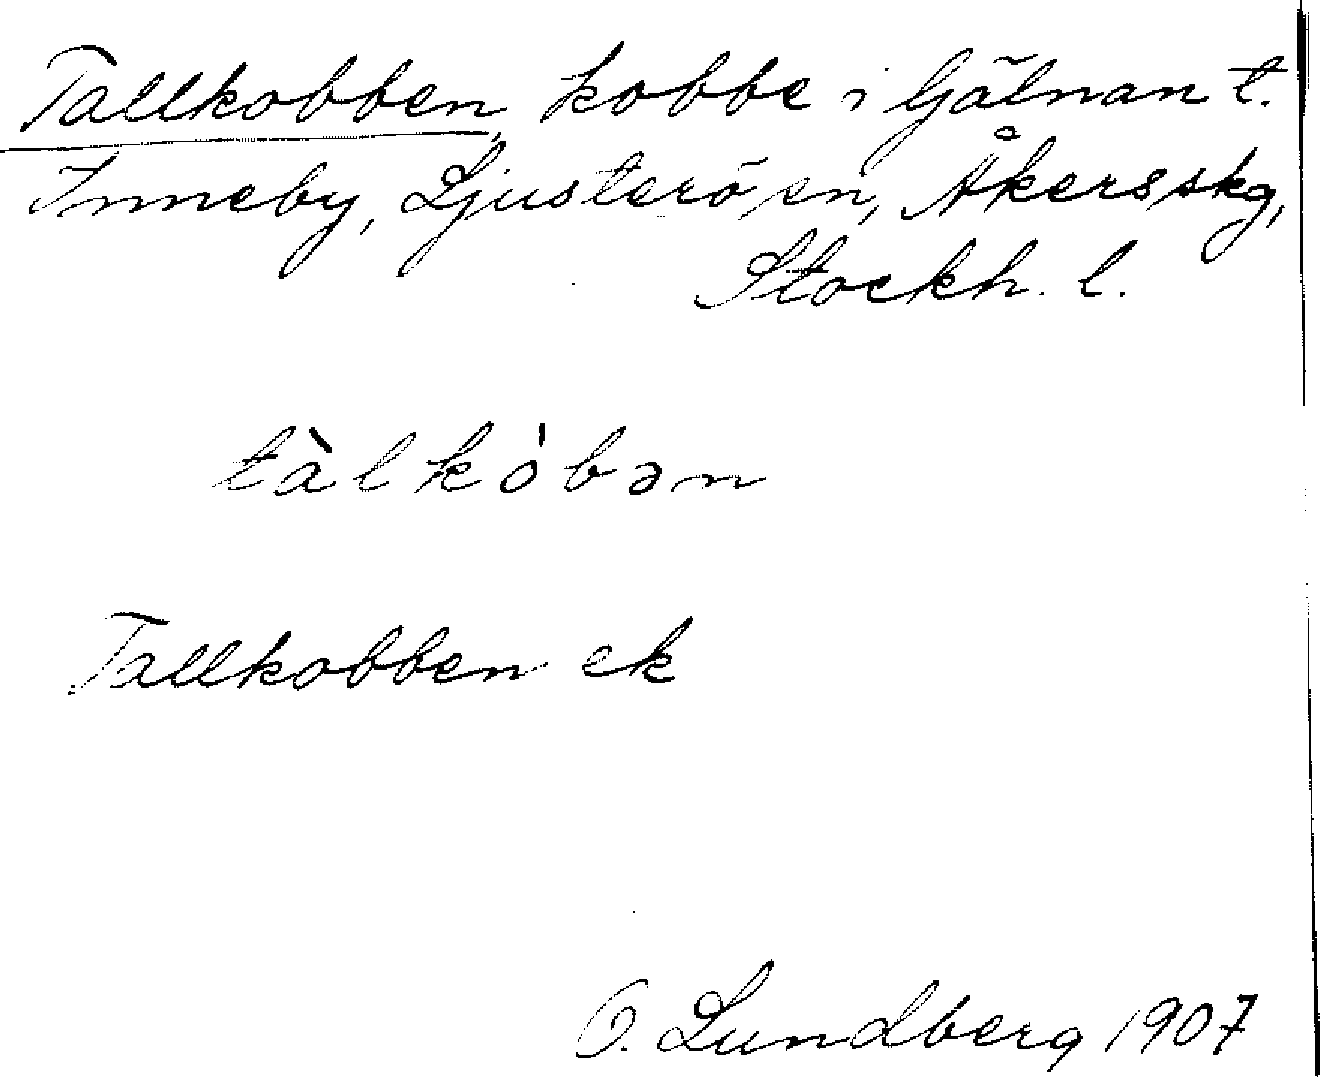 Tallkobben, kobbe i Gälnan t.
Inneby, Ljusterö sn, Åkers skg,
Stockh. l.
tàlkȯ̀bən
Tallkobben ek
O. Lundberg 1907